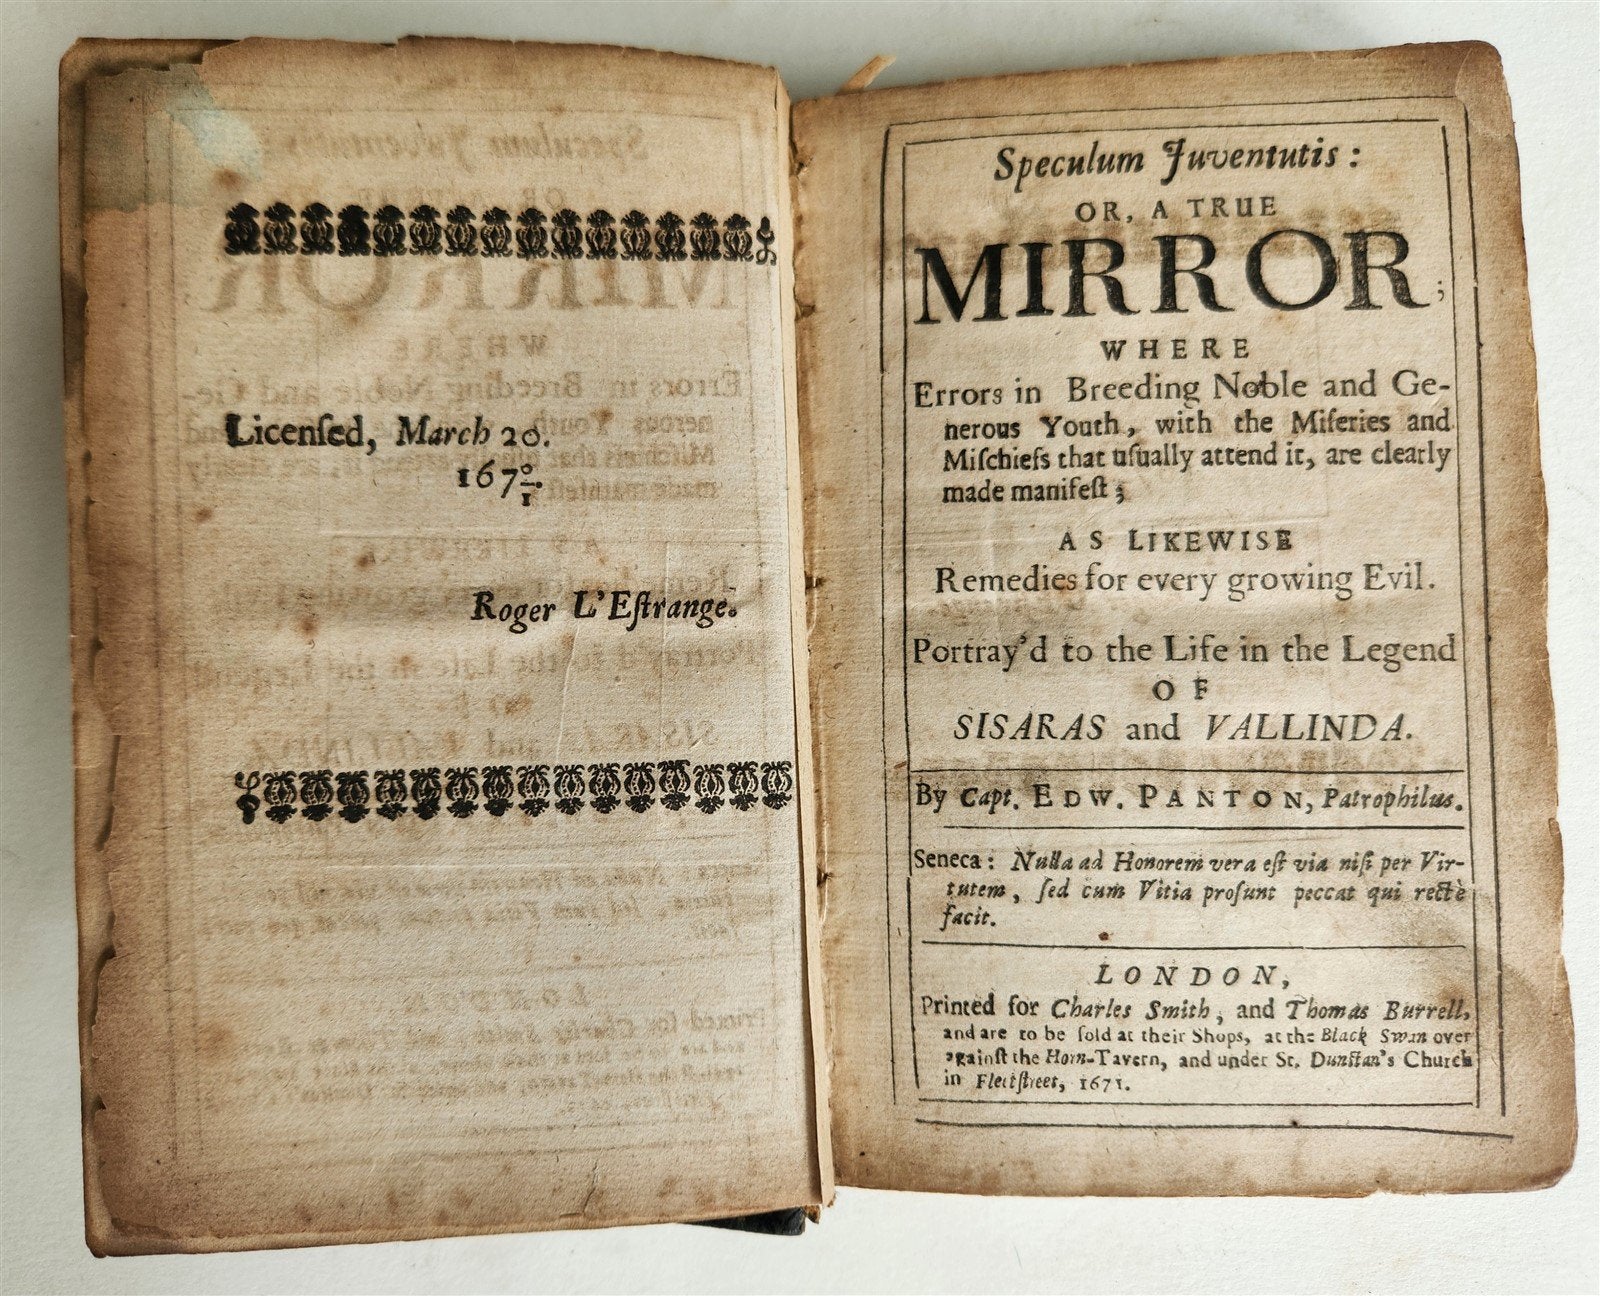 Licenſed, March 20.
167⁰⁄₁.
Roger L'Eſtrange.
Speculum Juventutis:
OR, A TRUE
MIRROR;
WHERE
Errors in Breeding Noble and Ge-
nerous Youth, with the Miſeries and
Miſchiefs that uſually attend it, are clearly
made manifeſt;
AS LIKEWISE
Remedies for every growing Evil.
Portray'd to the Life in the Legend
OF
SISARAS and VALLINDA.
By Capt. EDW. PANTON, Patrophilus.
Seneca: Nulla ad Honorem vera eſt via niſi per Vir-
tutem, ſed cum Vitia proſunt peccat qui rectè
facit.
LONDON,
Printed for Charles Smith, and Thomas Burrell,
and are to be ſold at their Shops, at the Black Swan over
againſt the Horn-Tavern, and under St. Dunſtan's Church
in Fleetſtreet, 1671.